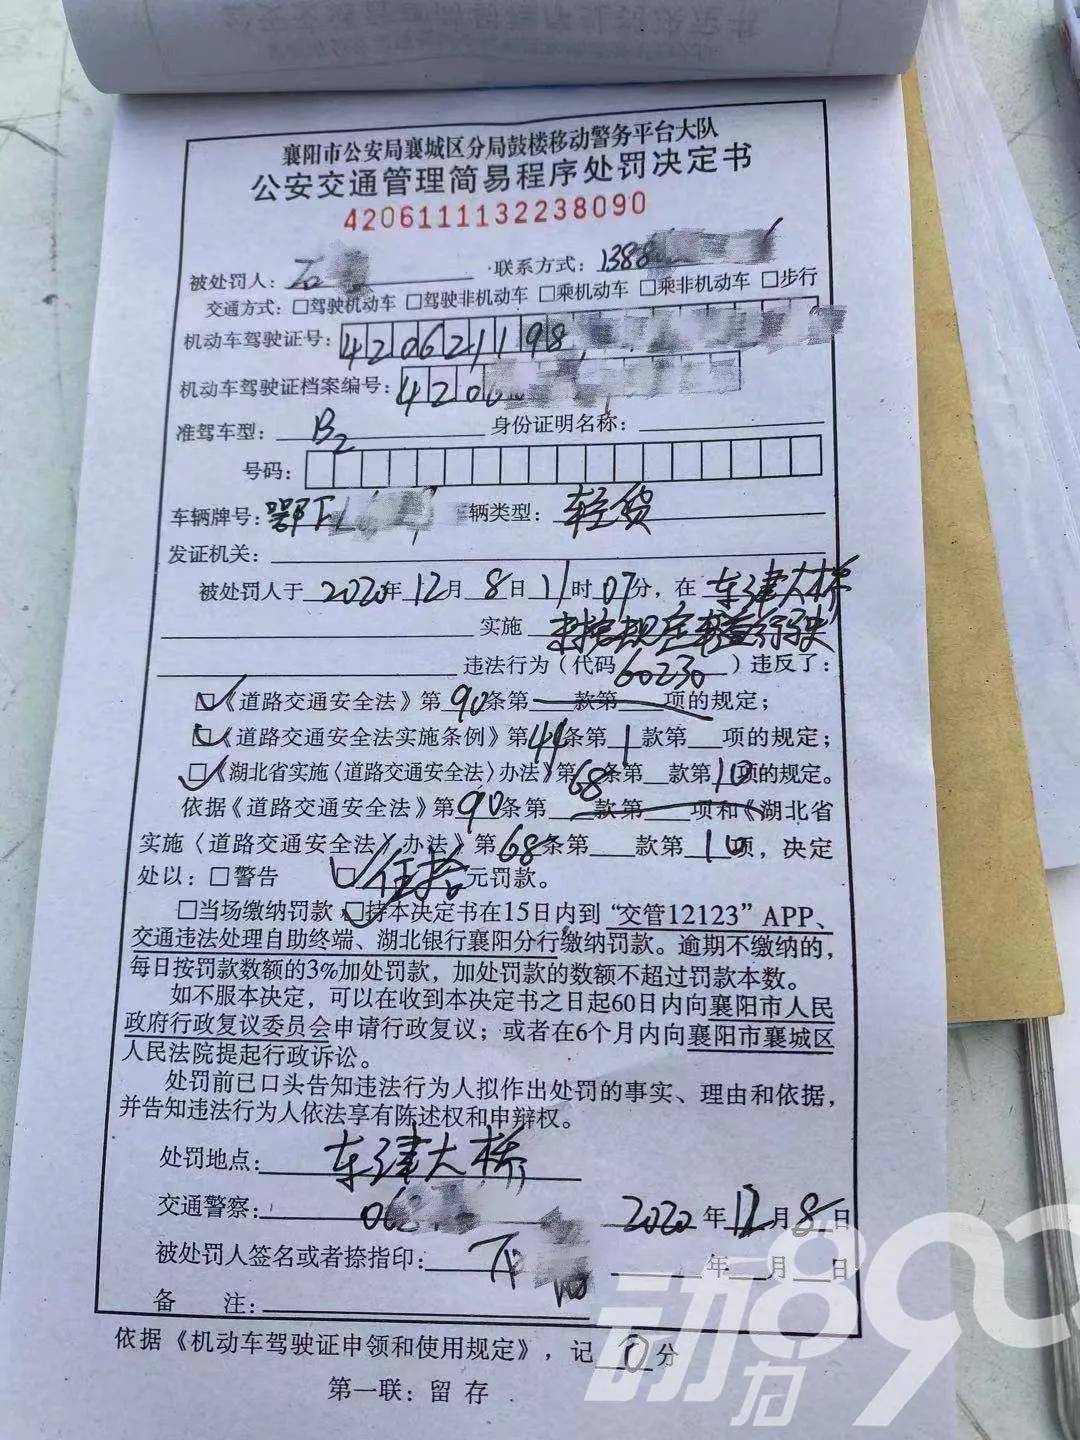 襄阳市公安局襄城区分局鼓楼移动警务平台大队
公安交通管理简易程序处罚决定书
4206111132238090
被处罚人：石 联系方式：1388
交通方式：□驾驶机动车 □驾驶非机动车 □乘机动车 □乘非机动车 □步行
机动车驾驶证号：42062119 8
机动车驾驶证档案编号：4206
准驾车型：B2 身份证明名称：
号码：
车辆牌号：鄂F 辆类型：轻货
发证机关：
被处罚人于2020年12月8日11时07分，在车津大桥
实施 未按规定车道行驶
违法行为（代码60230）违反了：
☑《道路交通安全法》第90条第 款第 项的规定；
☑《道路交通安全法实施条例》第44条第1款第 项的规定；
☑《湖北省实施〈道路交通安全法〉办法》第68条第 款第10项的规定。
依据《道路交通安全法》第90条第 款第 项和《湖北省
实施〈道路交通安全法〉办法》第68条第 款第10项，决定
处以：□警告 ☑伍拾元罚款。
□当场缴纳罚款 ☑持本决定书在15日内到“交管12123”APP、
交通违法处理自助终端、湖北银行襄阳分行缴纳罚款。逾期不缴纳的，
每日按罚款数额的3%加处罚款，加处罚款的数额不超过罚款本数。
如不服本决定，可以在收到本决定书之日起60日内向襄阳市人民
政府行政复议委员会申请行政复议；或者在6个月内向襄阳市襄城区
人民法院提起行政诉讼。
处罚前已口头告知违法行为人拟作出处罚的事实、理由和依据，
并告知违法行为人依法享有陈述权和申辩权。
处罚地点：车津大桥
交通警察：068 2020年12月8日
被处罚人签名或者捺指印： 年 月 日
备 注：
依据《机动车驾驶证申领和使用规定》，记0分
第一联：留存
动力890